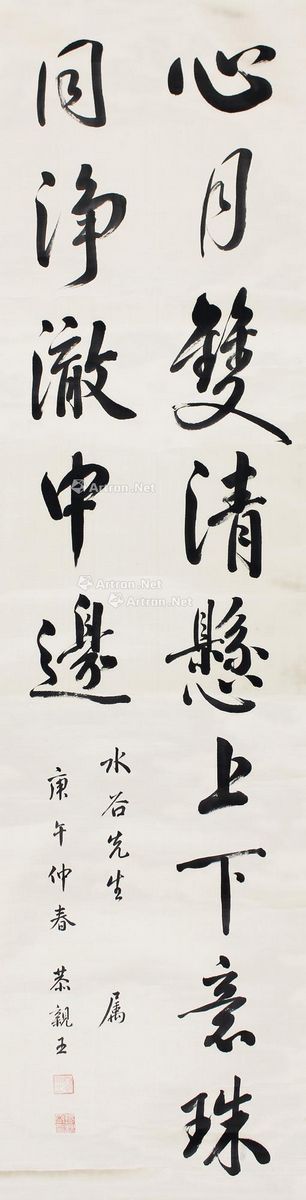 心月雙清懸上下意珠
同淨澈中邊
水谷先生屬
庚午仲春 恭親王
Artron.Net
Artron.Net
Artron.Net